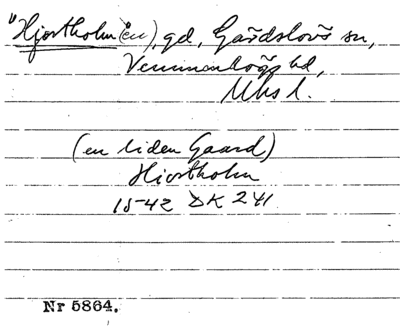 "Hjortholm(en), gd, Gärdslövs sn,
Vemmenhögs hd,
Mhs l.
(en liden Gaard)
Hiortholm
1542 DK 241
Nr 5864.